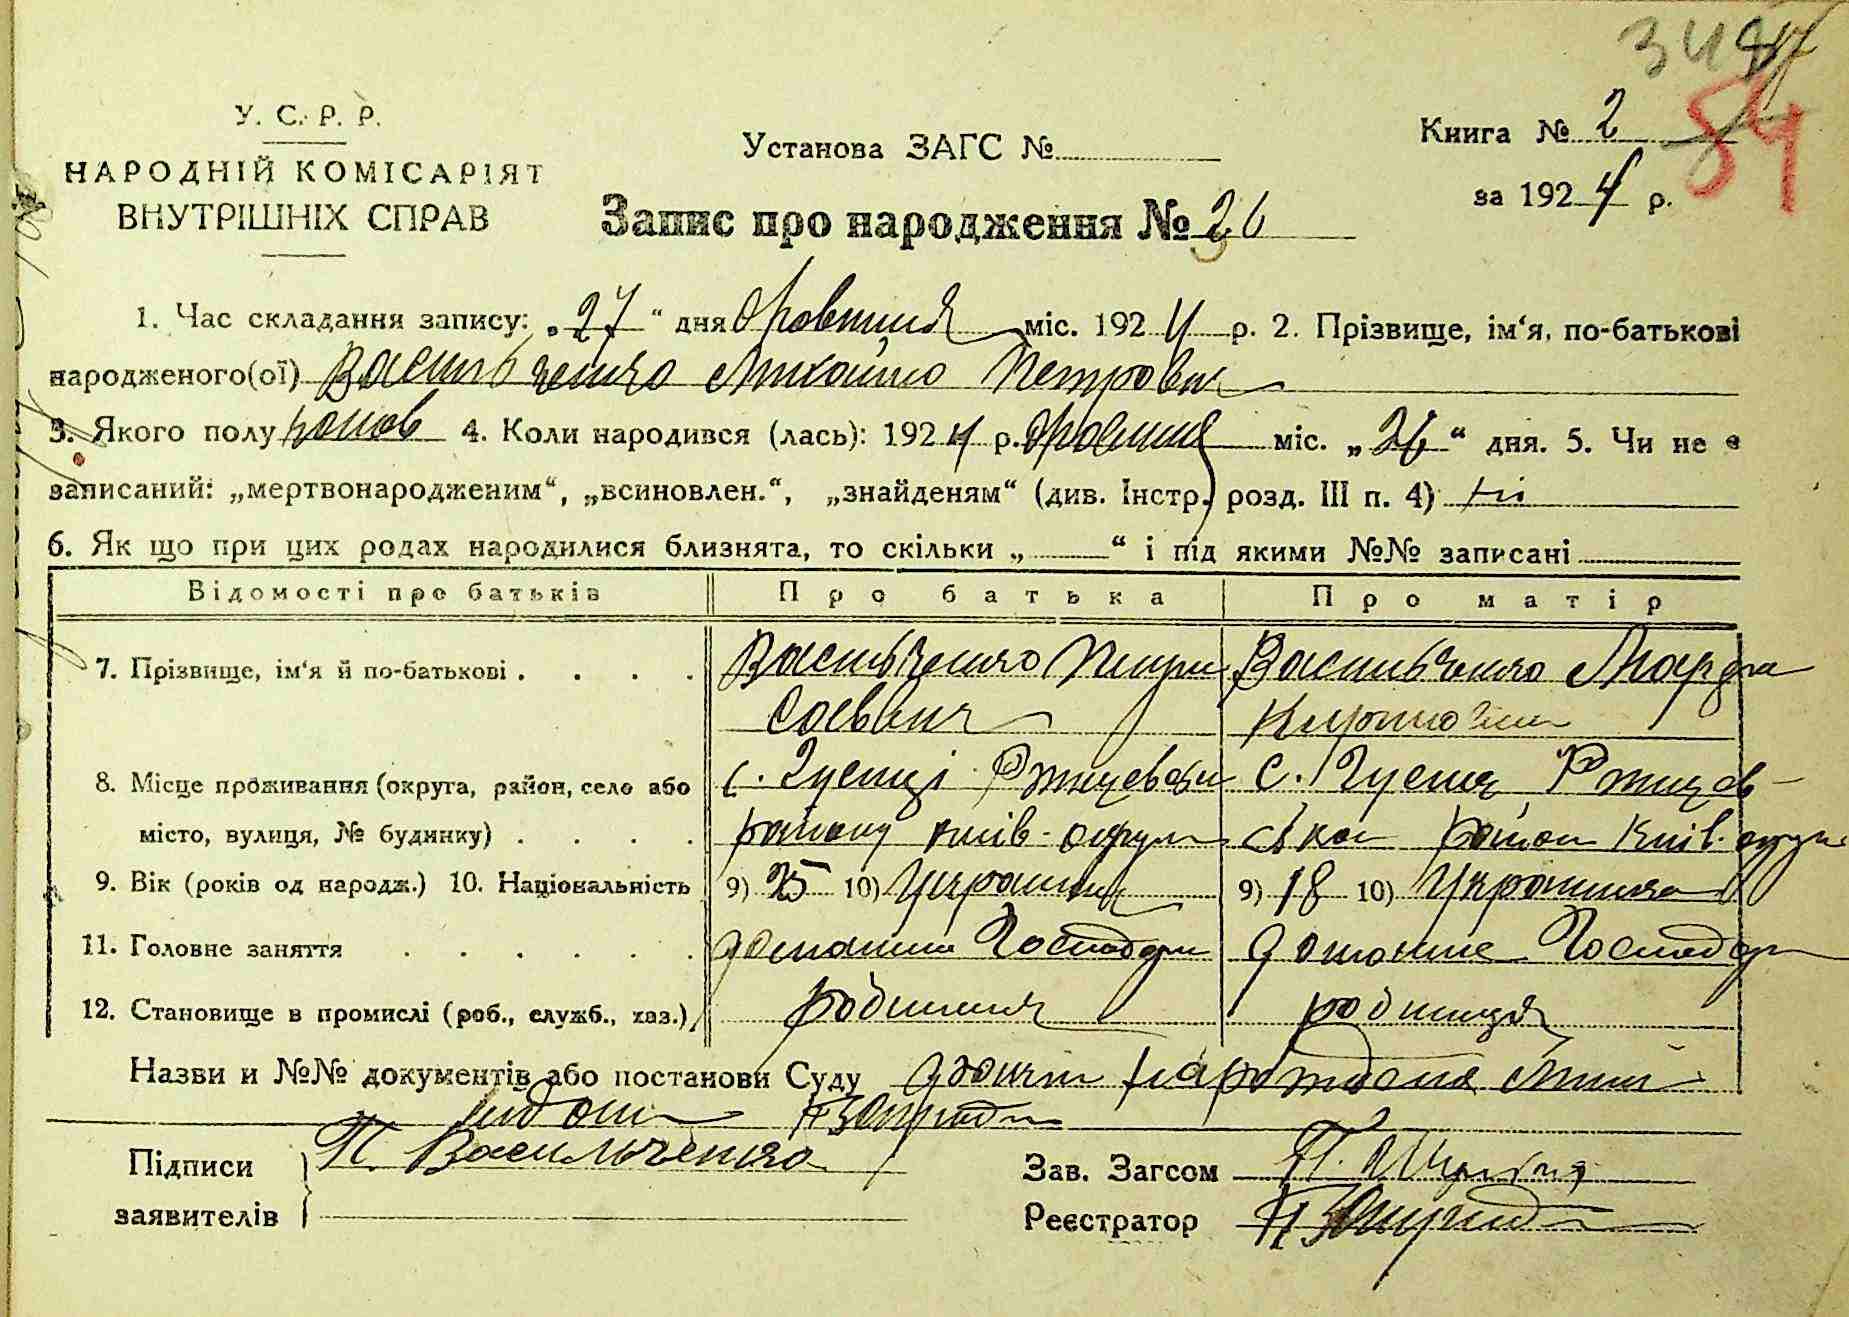 348
54
У. С. Р. Р.
НАРОДНІЙ КОМІСАРІЯТ
ВНУТРІШНІХ СПРАВ
Установа ЗАГС №
Книга № 2
за 1924 р.
Запис про народження № 26
1. Час складання запису: „27“ дня міс. 1924 р. 2. Прізвище, ім‘я, по-батькові
народженого(ої) Васильченко Михайло Петрович
3. Якого полу 4. Коли народився (лась): 1924 р. міс. „26“ дня. 5. Чи не є
записаний: „мертвонародженим“, „всиновлен.“, „знайденям“ (див. Інстр. розд. III п. 4) ні
6. Як що при цих родах народилися близнята, то скільки „ “ і під якими №№ записані
Відомості про батьків Про батька Про матір
7. Прізвище, ім‘я й по-батькові . . . . Васильченко Петро Васильченко Марфа
8. Місце проживання (округа, район, село або с. Гусенці с.
місто, вулиця, № будинку) . . . . району Київ. округи район Київ. округи
9. Вік (років од народж.) 10. Національність 9) 25 10) Українець 9) 18 10) Українка
11. Головне заняття . . . . . . домашнє Господар домашнє Господар
12. Становище в промислі (роб., служб., хаз.)
Назви и №№ документів або постанови Суду
Підписи П. Васильченко Зав. Загсом П.
заявителів Реєстратор